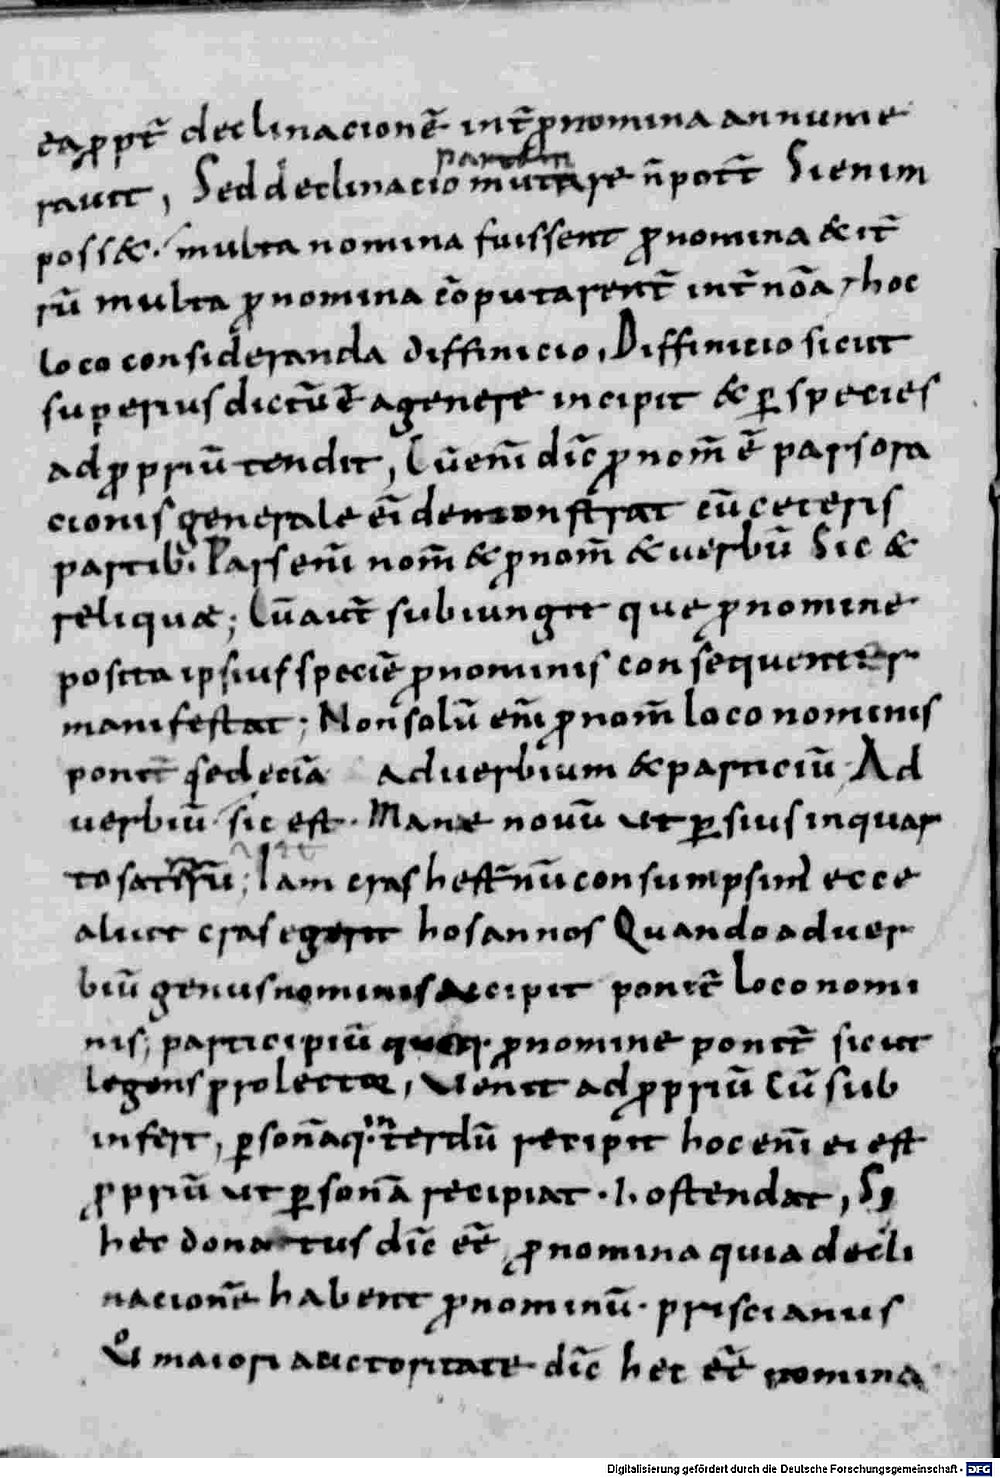 ea ꝓpt̄ declinacionē int̄ ꝓnomina annume
rauit, Sed declinacio partem mutare n̄ potē Si enim
poss&. multa nomina fuissent ꝓnomina & it̄
rū multa ꝓnomina cōputarent̄ int̄ nōa, hoc
loco consideranda diffinicio, Diffinitio sicut
superius dictū ē a genere incipit & ꝑ species
ad ꝓpriū tendit, Cū enī dic̄ ꝓnom̄ ē pars ora
cionis generale eī demonstrat cū ceteris
partib; Pars enī nom̄ & ꝓnom̄ & uerbū Sic &
reliquae; Cū aut̄ subiungit que ꝓnomine
posita ipsius speciē ꝓnominis consequenter
manifestat; Non solū enī ꝓnom̄ loco nominis
ponit̄ sed eciā aduerbium & particiū Ad
uerbiū sic est. Mane nouū ut ꝑsius in quar
to Iam cras hest̄nū consumpsim̄ ecce
aliut cras egerit hos annos Quando aduer
biū genus nominis accipit ponit̄ loco nomi
nis; participiū ꝓnomine ponit̄ sicut
legens pro lector, Venit ad ꝓpriū Cū sub
infert, recipit hoc enī ei est
ꝓpriū ut ꝑsonā recipiat. h. ostendat, Si
hec donatus dic̄ eē ꝓnomina quia decli
nacionē habent ꝓnominū. priscianus
maiori auctoritate dic̄ hec eē nomina
Digitalisierung gefördert durch die Deutsche Forschungsgemeinschaft - DFG